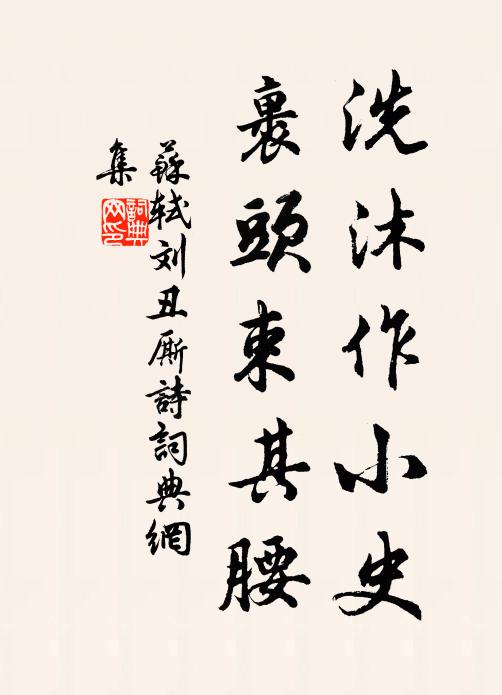 洗沐作小史
裹頭束其腰
蘇軾刘丑厮詩詞典網
集
詞典網印